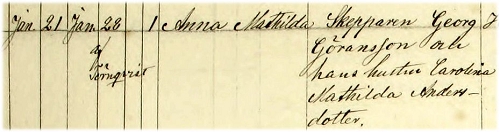 Jan 21 Jan 28 1 Anna Mathilda Skepparen Georg J
af Göransson och
Törnqvist hans hustru Carolina
Mathilda Anders-
dotter.